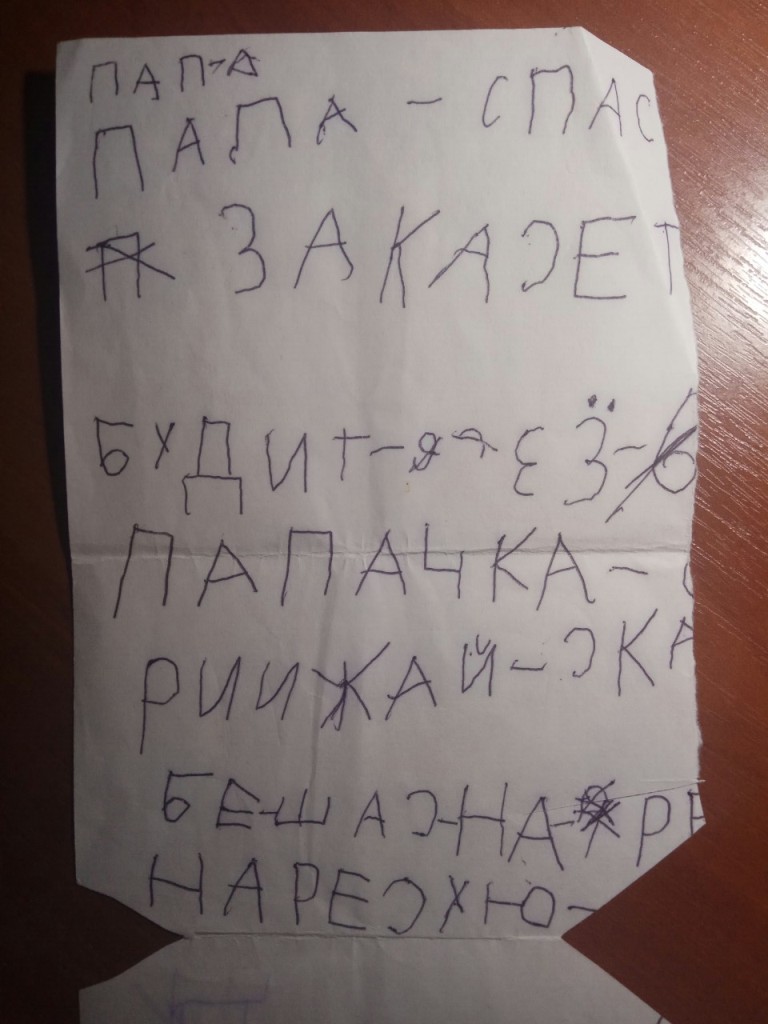 ПАП-А
ПАПА - СПАС
ЗАКАЗЕТ
БУДИТ-Я
ПАПАЧКА-
РИИЖАЙ-СКА
БЕ-ШАС-НА-
НАРЕСХЮ-